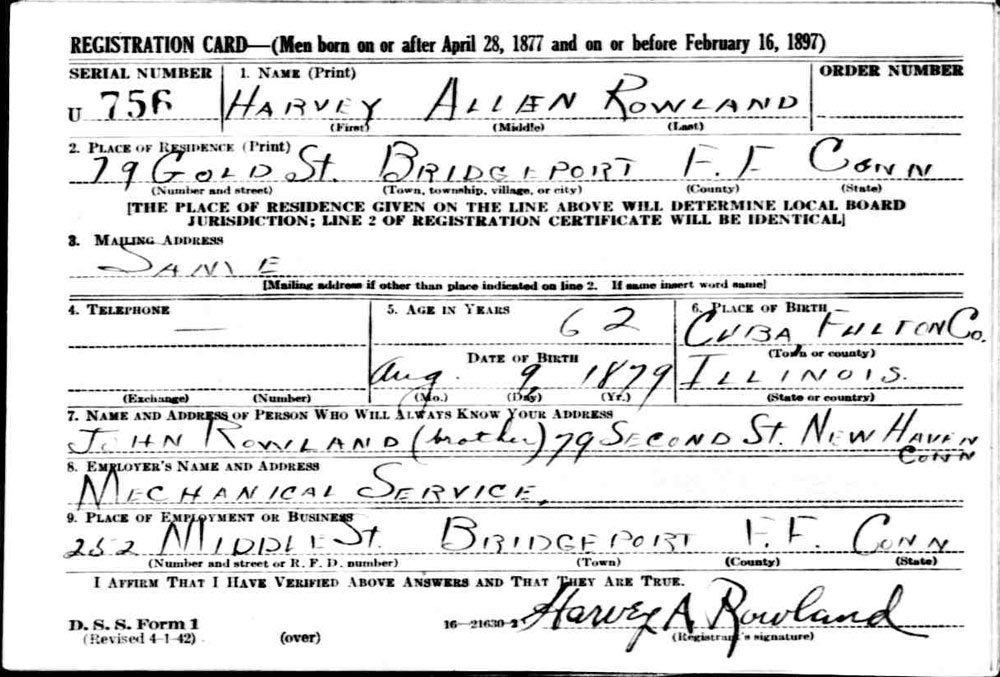 REGISTRATION CARD—(Men born on or after April 28, 1877 and on or before February 16, 1897)
SERIAL NUMBER 1. NAME (Print) ORDER NUMBER
U 756 HARVEY ALLEN ROWLAND
(First) (Middle) (Last)
2. PLACE OF RESIDENCE (Print)
79 GOLD St. BRIDGEPORT F.F CONN
(Number and street) (Town, township, village, or city) (County) (State)
[THE PLACE OF RESIDENCE GIVEN ON THE LINE ABOVE WILL DETERMINE LOCAL BOARD
JURISDICTION; LINE 2 OF REGISTRATION CERTIFICATE WILL BE IDENTICAL]
3. MAILING ADDRESS
SAME
[Mailing address if other than place indicated on line 2. If same insert word same]
4. TELEPHONE 5. AGE IN YEARS 6. PLACE OF BIRTH
— 62 CUBA, FULTON Co.
DATE OF BIRTH (Town or county)
Aug. 9 1879 ILLINOIS.
(Exchange) (Number) (Mo.) (Day) (Yr.) (State or country)
7. NAME AND ADDRESS OF PERSON WHO WILL ALWAYS KNOW YOUR ADDRESS
JOHN ROWLAND (brother) 79 SECOND St. NEW HAVEN
CONN
8. EMPLOYER'S NAME AND ADDRESS
MECHANICAL SERVICE.
9. PLACE OF EMPLOYMENT OR BUSINESS
252 MIDDLE St. BRIDGEPORT F.F. CONN
(Number and street or R. F. D. number) (Town) (County) (State)
I AFFIRM THAT I HAVE VERIFIED ABOVE ANSWERS AND THAT THEY ARE TRUE.
D. S. S. Form 1 16—21630-2 Harvey A Rowland
(Revised 4-1-42) (over) (Registrant's signature)